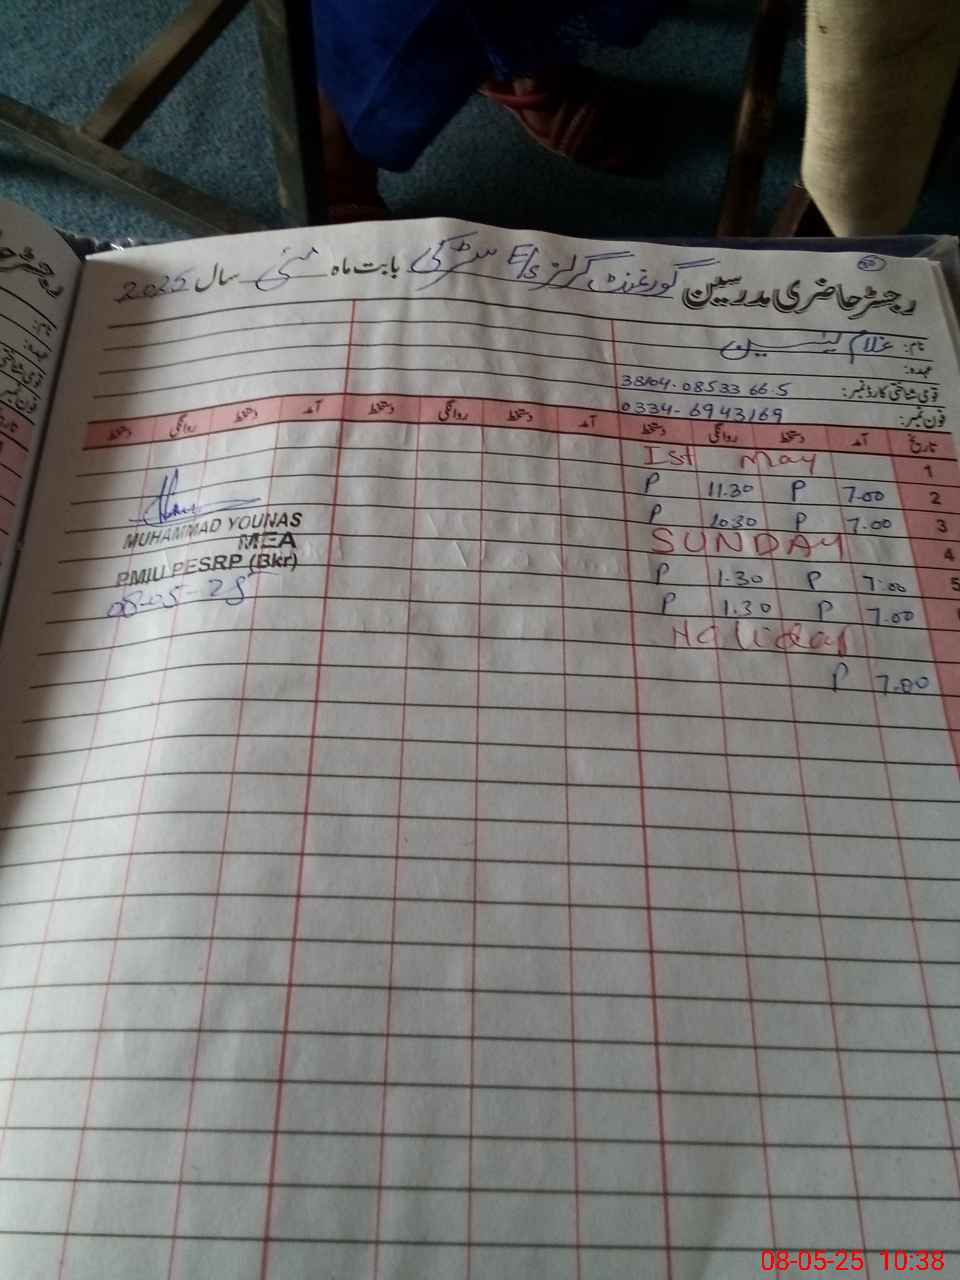 رجسٹر حاضری مدرسین گورنمنٹ گرلز E/S سٹرکی بابت ماہ مئی سال 2025
نام: غلام یٰسین
عہدہ:
قومی شناختی کارڈ نمبر: 38104-0853366-5
فون نمبر: 0334-6943169
تاریخ آمد دستخط روانگی دستخط آمد دستخط روانگی دستخط آمد دستخط روانگی دستخط
1 1st May
2 7.00 P 11.30 P
3 7.00 P 10.30 P
4 SUNDAY
5 7:00 P 1.30 P
7.00 P 1.30 P
Holiday
7.00 P
MUHAMMAD YOUNAS
MEA
PMIU PESRP (Bkr)
08-05-25
نام:
عہدہ:
08-05-25 10:38